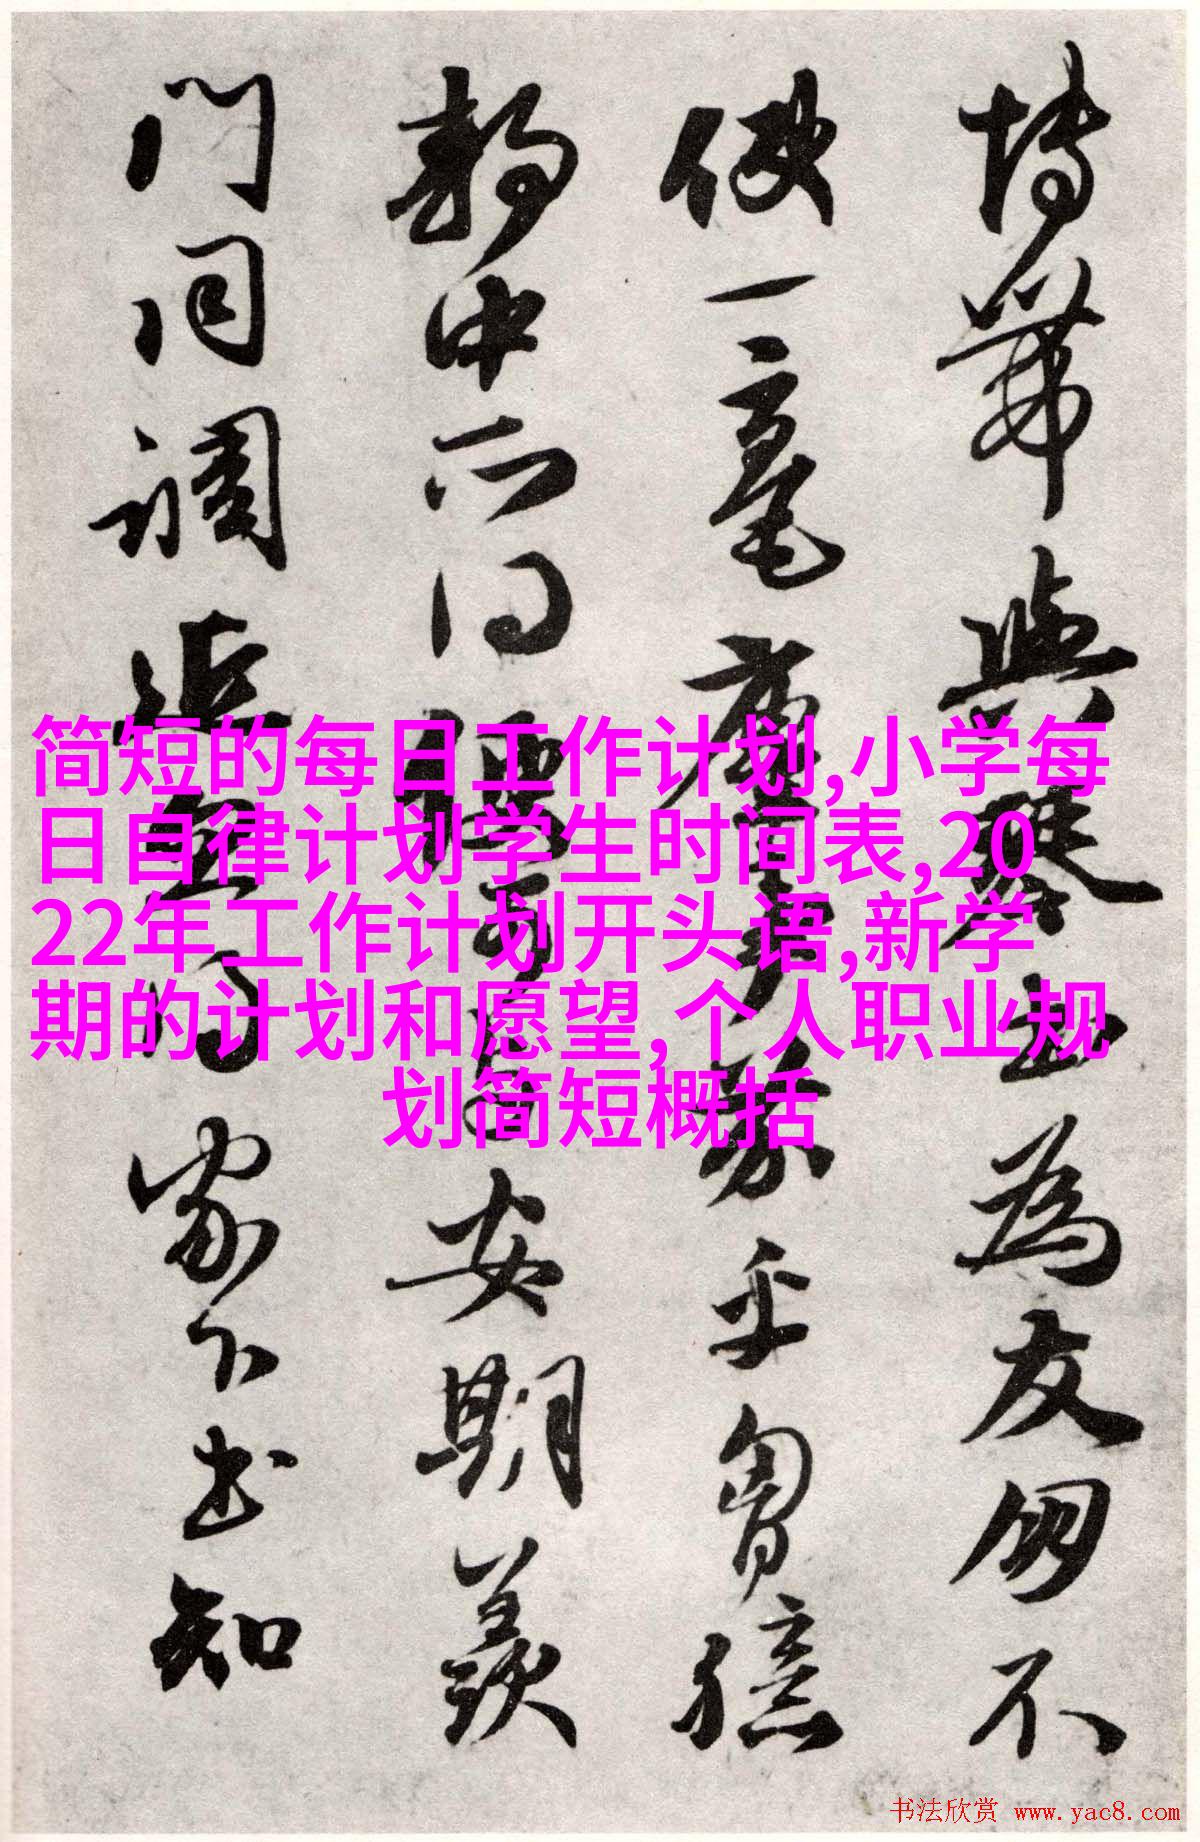 與琴書為友朋不
使一毫塵事芥乎胸臆
静中所得安期羨
門同調家下書知
简短的每日工作计划,小学每
日自律计划学生时间表,20
22年工作计划开头语,新学
期的计划和愿望,个人职业规
划简短概括
书法欣赏 www.yac8.com